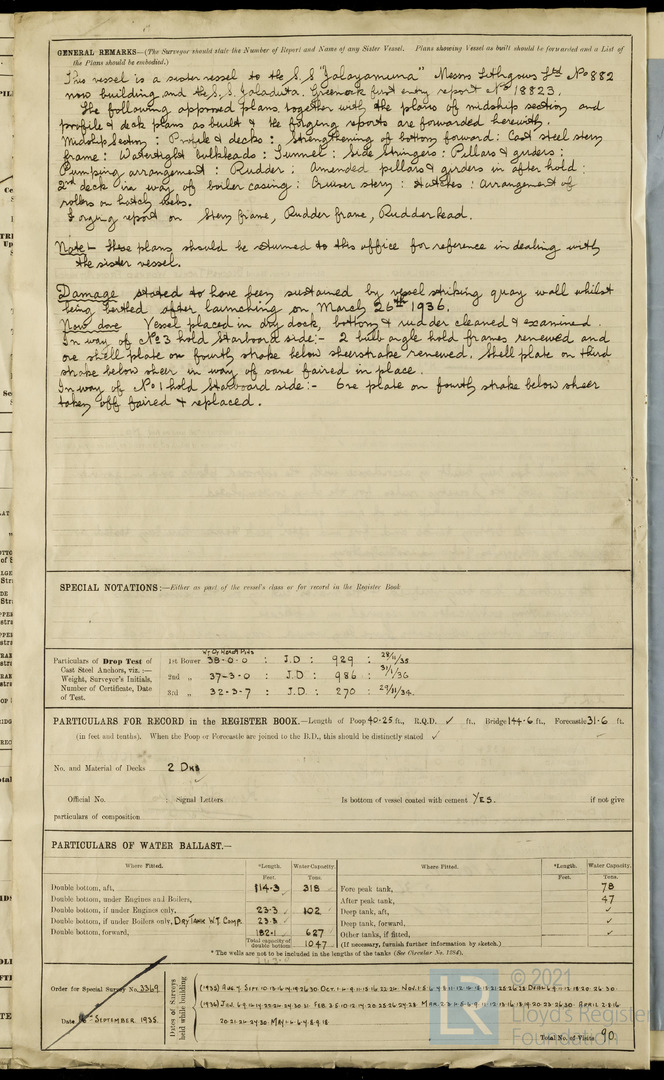 GENERAL REMARKS—(The Surveyor should state the Number of Report and Name of any Sister Vessel. Plans showing Vessel as built should be forwarded and a List of
the Plans should be embodied.)
This vessel is a sister vessel to the S.S "Jalayamuna" Messrs Lithgows Ltd No 882
now building and the S.S. Jaladuta. Greenock first entry report No 18823.
The following approved plans, together with the plans of midship section and
profile & deck plans as built & the forging reports are forwarded herewith.
Midship section : Profile & decks : Strengthening of bottom forward : Cast steel stern
frame : Watertight bulkheads : Tunnel : Side Stringers : Pillars & girders :
Pumping arrangement : Rudder : Amended pillars & girders in after hold :
2nd deck in way of boiler casing : Cruiser stern : Hatches : Arrangement of
rollers on hatch webs.
Forging report on Stern frame, Rudder frame, Rudder head.
Note:- These plans should be returned to this office for reference in dealing with
the sister vessel.
Damage stated to have been sustained by vessel striking quay wall whilst
being berthed after launching on March 26th 1936.
Now done Vessel placed in dry dock, bottom & rudder cleaned & examined.
In way of No 3 hold Starboard side:- 2 bulb angle hold frames renewed and
one shell plate on fourth strake below sheerstrake renewed. Shell plate on third
strake below sheer in way of same faired in place.
In way of No 1 hold Starboard side:- One plate on fourth strake below sheer
taken off faired & replaced.
SPECIAL NOTATIONS:—Either as part of the vessel's class or for record in the Register Book
Particulars of Drop Test of
Cast Steel Anchors, viz. :—
Weight, Surveyor's Initials,
Number of Certificate, Date
of Test.
1st Bower 38-0-0 : J.D : 929 : 28/11/35
2nd „ 37-3-0 : J.D : 986 : 31/1/36
3rd „ 32-3-7 : J.D. : 270 : 29/11/34.
PARTICULARS FOR RECORD in the REGISTER BOOK.—Length of Poop 40.25 ft., R.Q.D. ✓ ft., Bridge 144.6 ft., Forecastle 31.6 ft.
(in feet and tenths). When the Poop or Forecastle are joined to the B.D., this should be distinctly stated ✓
No. and Material of Decks 2 Dks
Official No. : Signal Letters Is bottom of vessel coated with cement YES. if not give
particulars of composition
PARTICULARS OF WATER BALLAST.—
Where Fitted. *Length. Water Capacity. Where Fitted. *Length. Water Capacity.
Feet. Tons. Feet. Tons.
Double bottom, aft, 114.3 318 Fore peak tank, 78
Double bottom, under Engines and Boilers, After peak tank, 47
Double bottom, if under Engines only, 23.3 102 Deep tank, aft, ✓
Double bottom, if under Boilers only, DRY TANK W.T. COMP. 23.3 Deep tank, forward, ✓
Double bottom, forward, 182.1 627 Other tanks, if fitted, ✓
Total capacity of double bottom 1047 (If necessary, furnish further information by sketch.)
* The wells are not to be included in the lengths of the tanks (See Circular No. 1284).
Order for Special Survey No. 3369
Date SEPTEMBER 1935.
Dates of Surveys
held while building
Total No. of Visits 90.
© 2021
LR
Lloyd's Register
Foundation